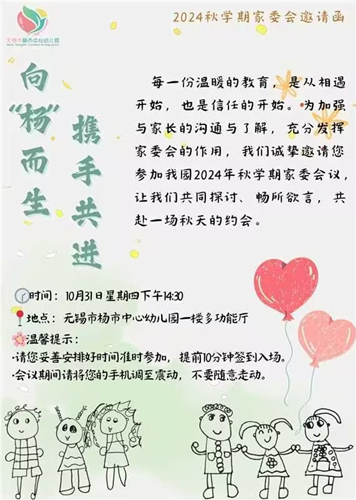 2024秋学期家委会邀请函
无锡市杨市中心幼儿园
向
“杨”
而
生
携
手
共
进
每一份温暖的教育，是从相遇
开始，也是信任的开始。为加强
与家长的沟通与了解，充分发挥
家委会的作用，我们诚挚邀请您
参加我园2024年秋学期家委会议，
让我们共同探讨、畅所欲言，共
赴一场秋天的约会。
时间：10月31日星期四下午14:30
地点：无锡市杨市中心幼儿园一楼多功能厅
温馨提示：
·请您妥善安排好时间准时参加，提前10分钟签到入场。
·会议期间请将您的手机调至震动，不要随意走动。